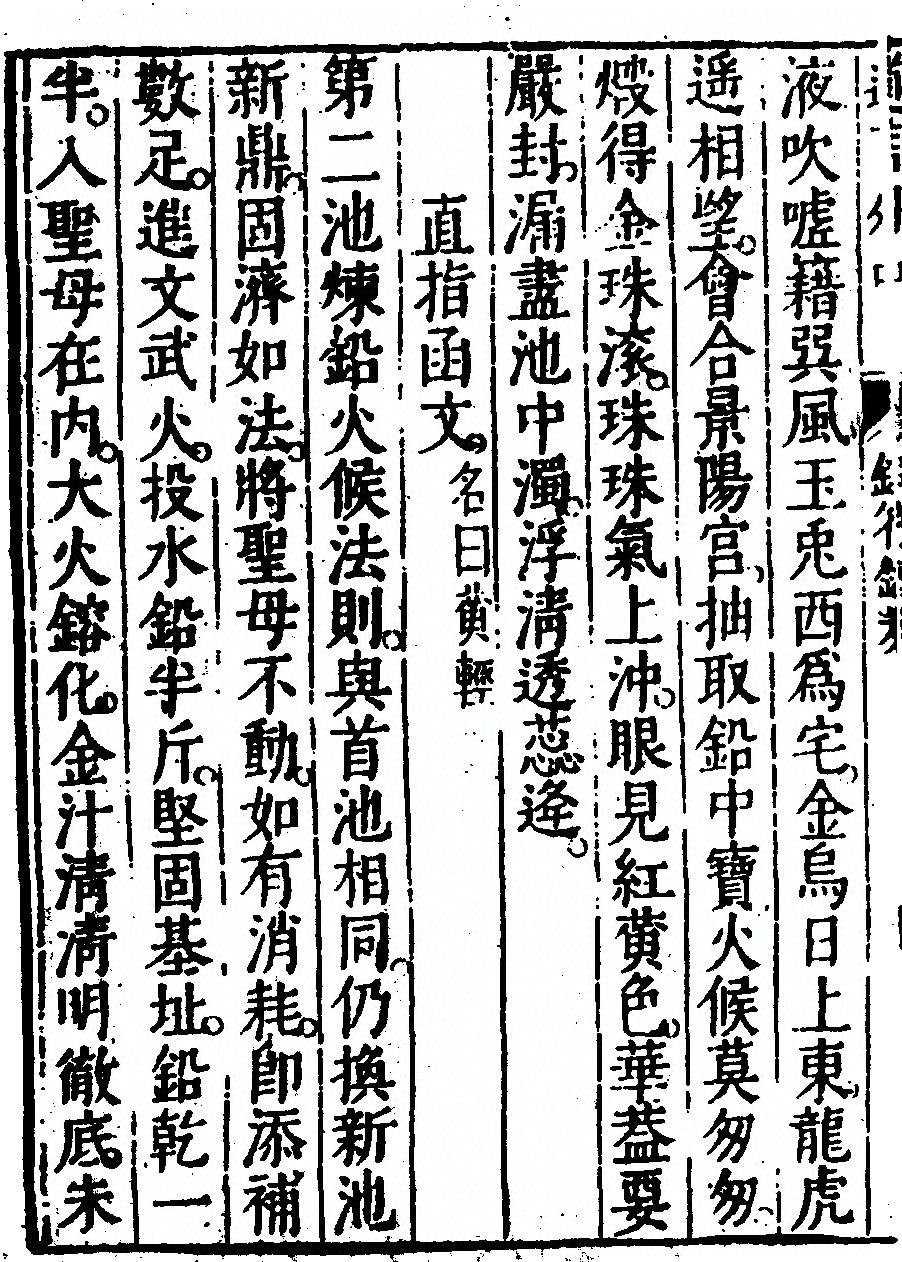 液吹噓籍巽風玉兎西爲宅金烏日上東龍虎
遥相望會合景陽宫抽取鉛中寶火候莫匆匆
煅得金珠滚珠珠氣上沖眼見紅黄色華葢要
嚴封漏盡池中濁浮淸透蕊逄
直指函文名曰黄轝
第二池煉鉛火候法則與首池相同仍換新池
新鼎固濟如法將聖母不動如有消耗卽添補
數足進文武火投水鉛半斤堅固基址鉛乾一
半入聖母在内大火鎔化金汁淸淸明徹底未